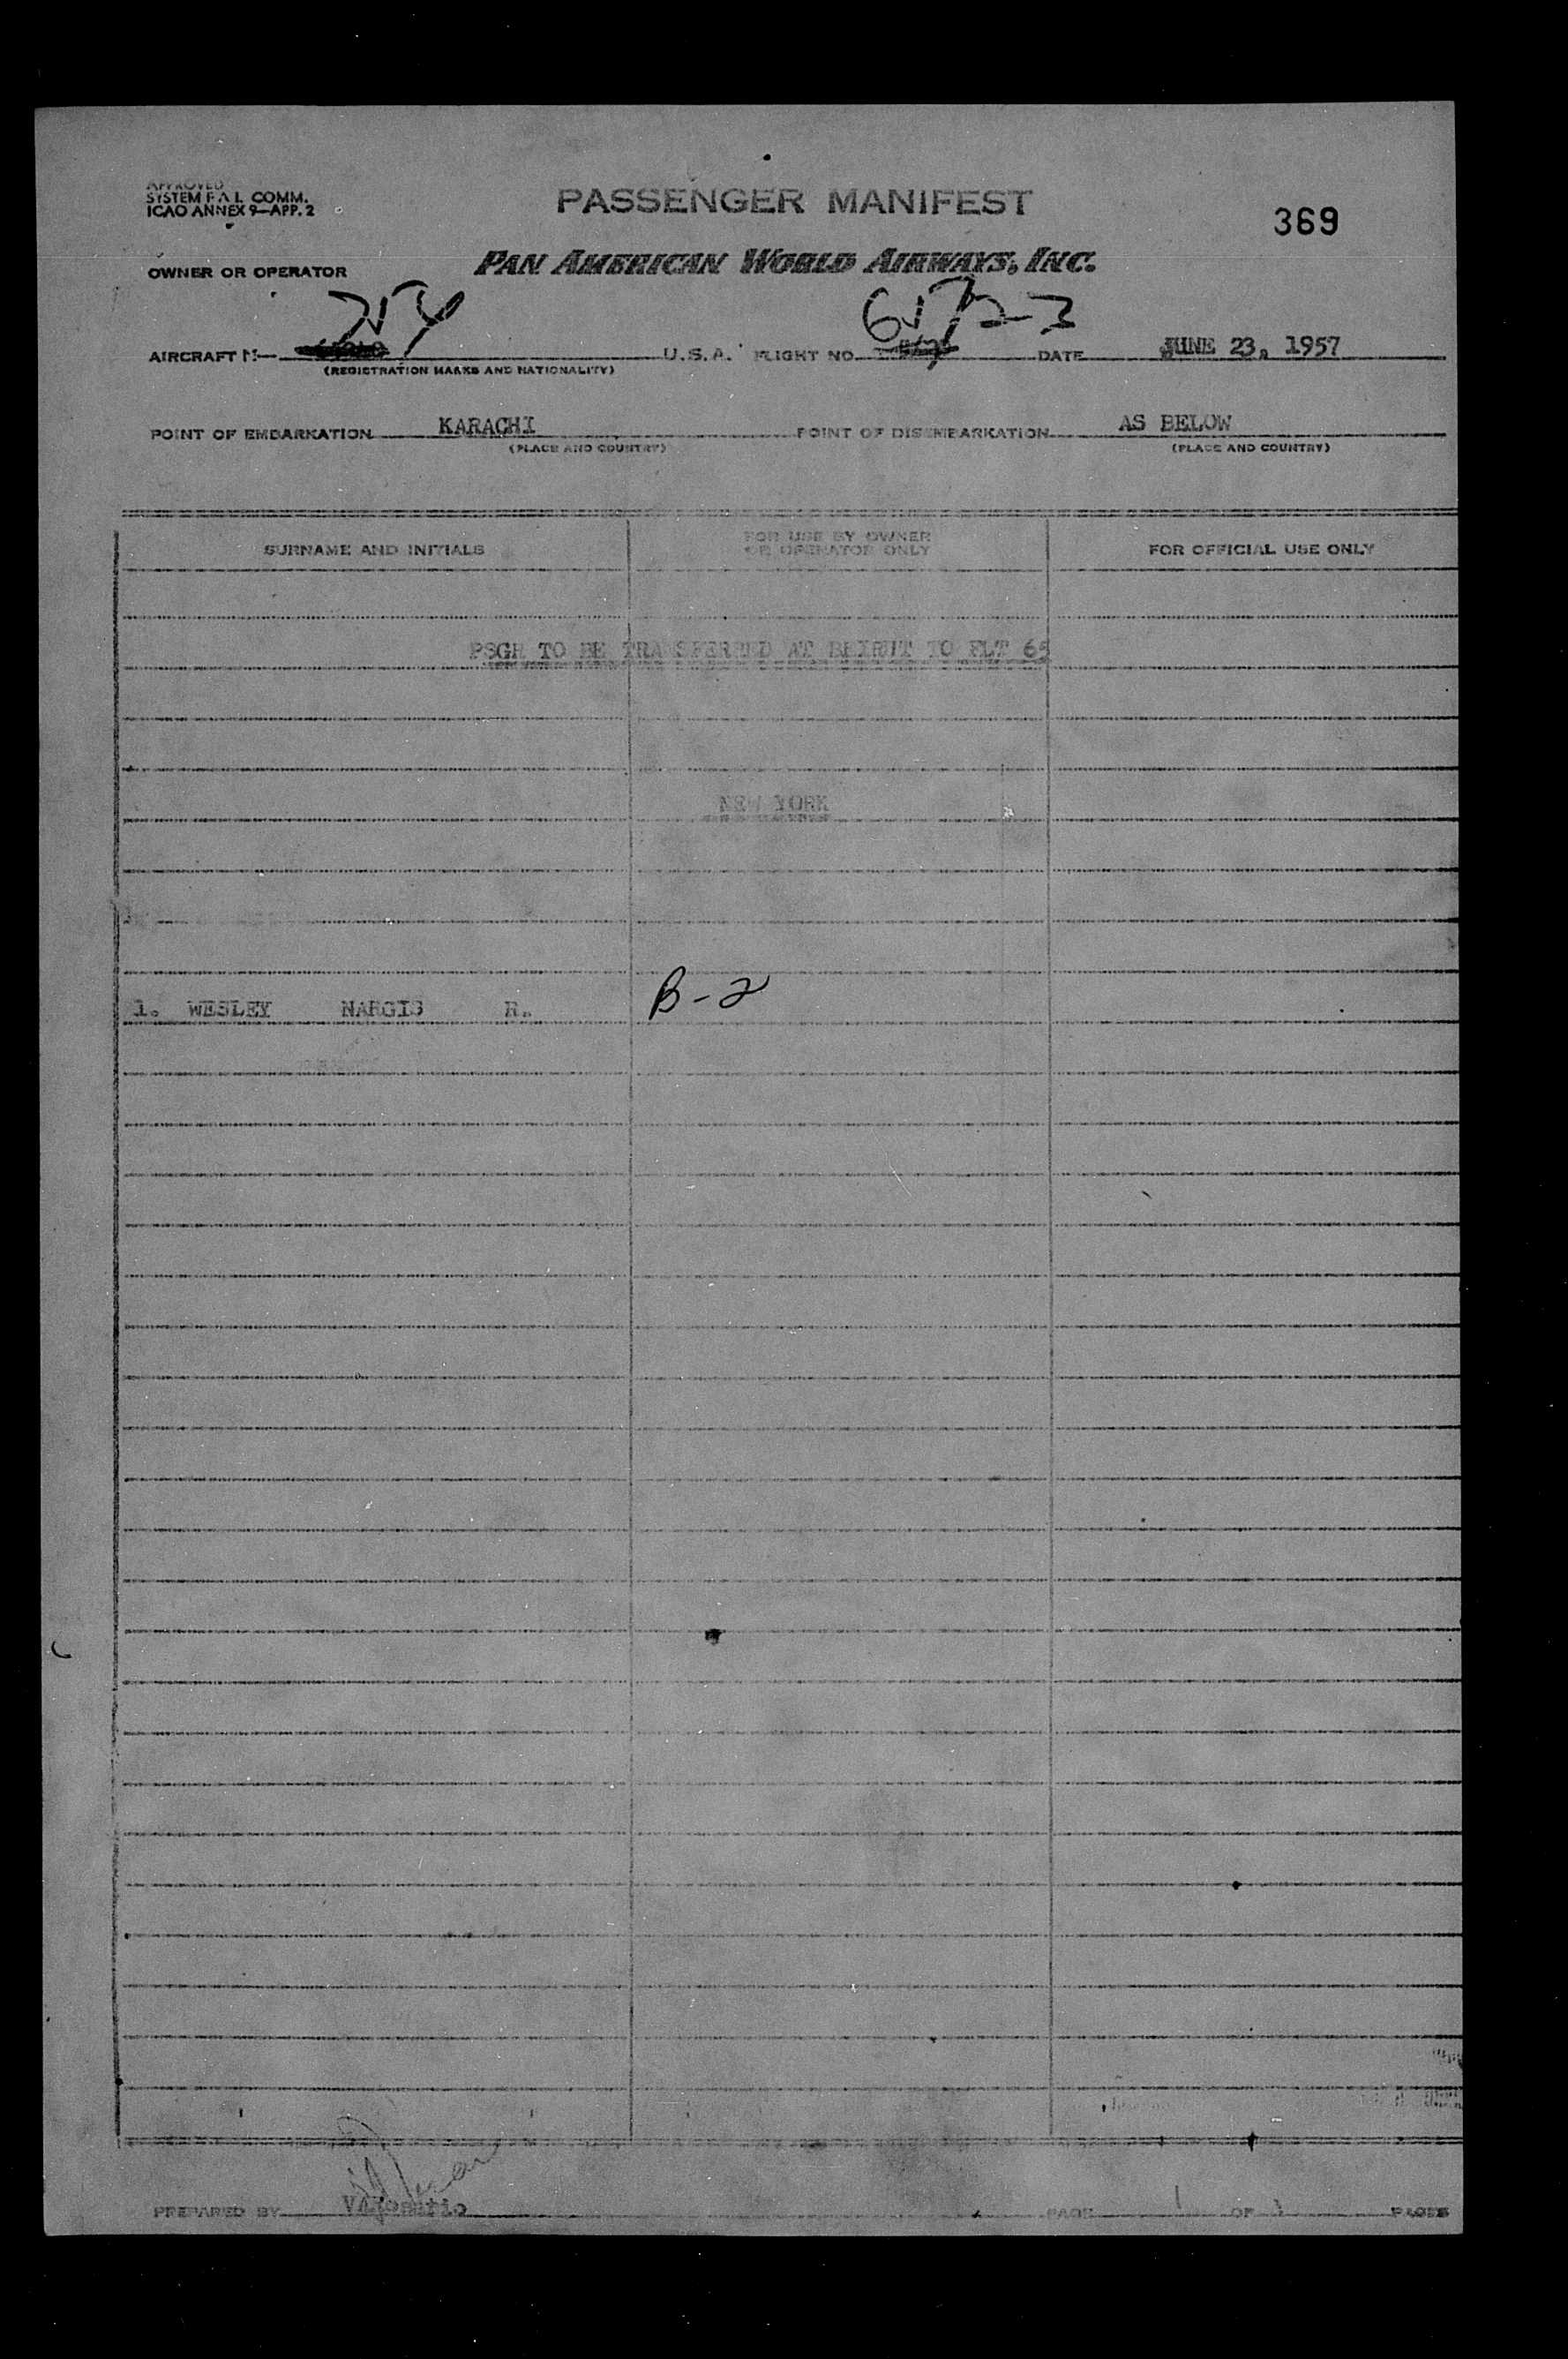 APPROVED
SYSTEM F.A.L. COMM.
ICAO ANNEX 9—APP. 2
PASSENGER MANIFEST
369
OWNER OR OPERATOR PAN AMERICAN WORLD AIRWAYS, INC.
AIRCRAFT N— U.S.A. FLIGHT NO. DATE JUNE 23, 1957
(REGISTRATION MARKS AND NATIONALITY)
POINT OF EMBARKATION KARACHI POINT OF DISEMBARKATION AS BELOW
(PLACE AND COUNTRY) (PLACE AND COUNTRY)
SURNAME AND INITIALS FOR USE BY OWNER OR OPERATOR ONLY FOR OFFICIAL USE ONLY
PSGR TO BE TRANSFERRED AT BEIRUT TO FLT 65
NEW YORK
1. WESLEY NARGIS R. B-2
PREPARED BY PAGE 1 OF 1 PAGES